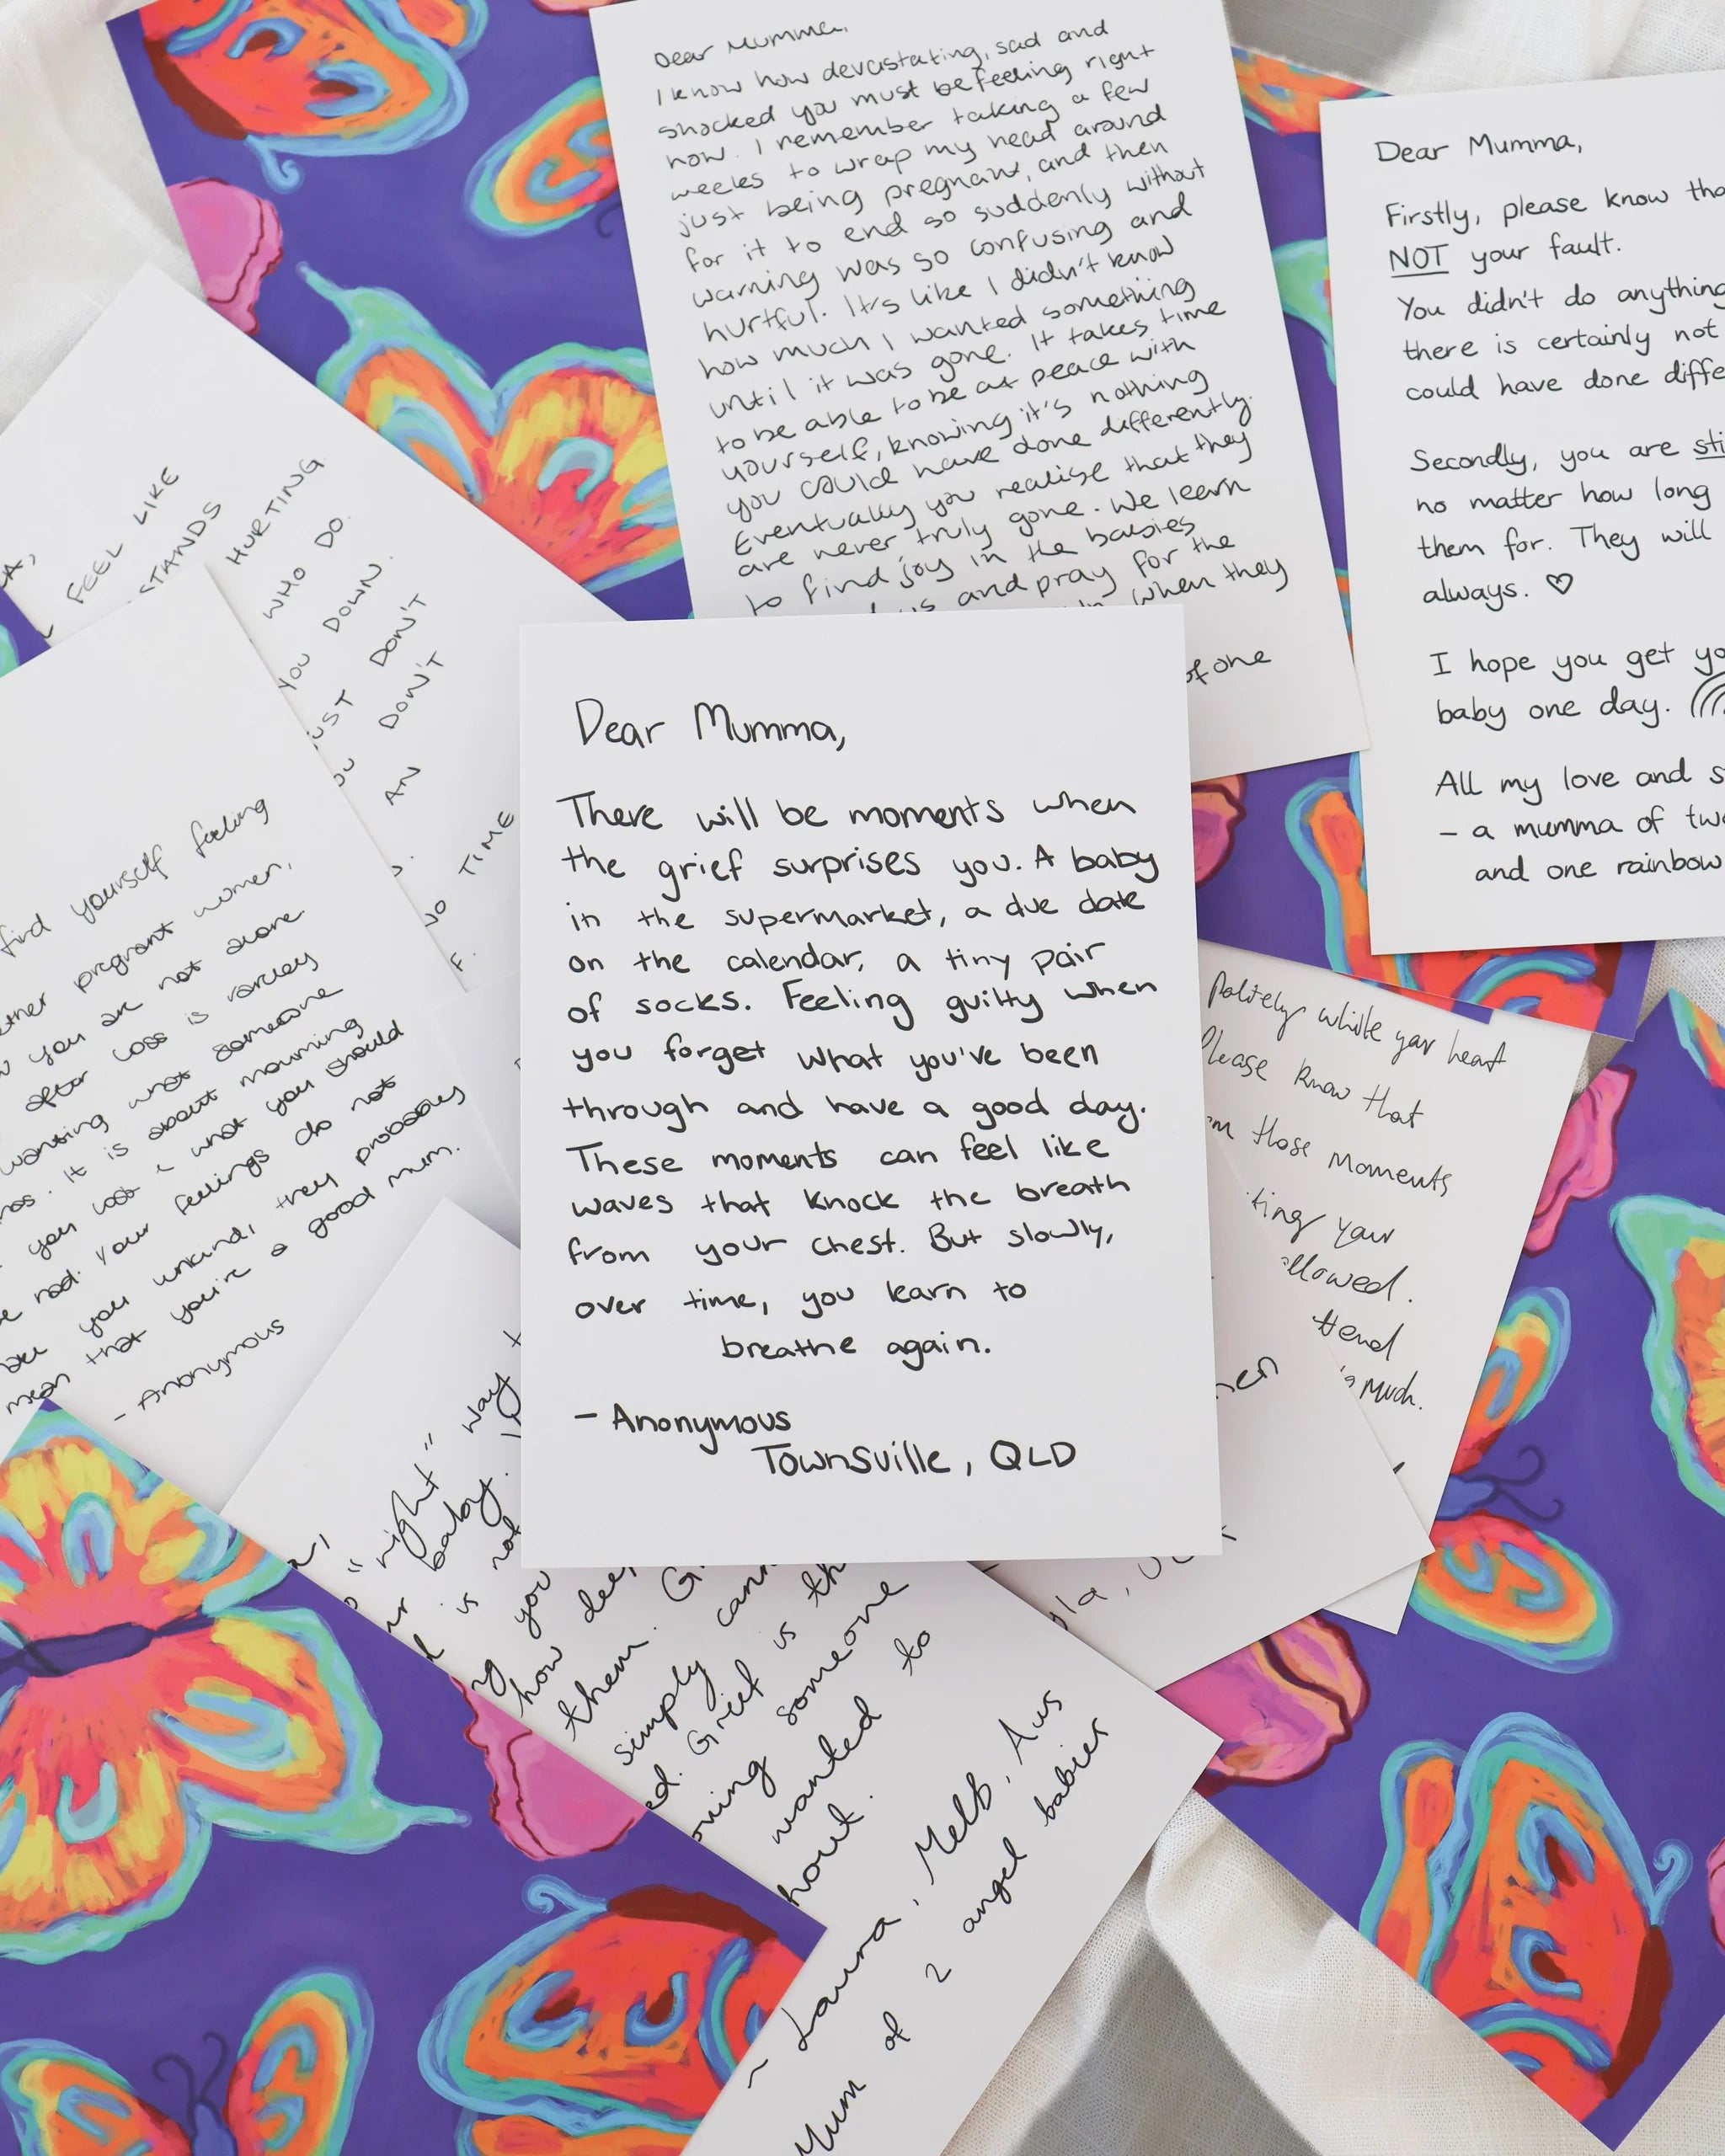 Dear Mumma,
I know how devastating, sad and
shocked you must be feeling right
now. I remember taking a few
weeks to wrap my head around
just being pregnant, and then
for it to end so suddenly without
warning was so confusing and
hurtful. It's like I didn't know
how much I wanted something
until it was gone. It takes time
to be able to be at peace with
yourself, knowing it's nothing
you could have done differently.
Eventually you realise that they
are never truly gone. We learn
to find joy in the babies
us and pray for the
when they
of one
Dear Mumma,
Firstly, please know
NOT your fault.
You didn't do anything
there is certainly not
could have done
Secondly, you are
no matter how long
them for. They will
always. ♡
I hope you get
baby one day.
All my love and
- a mumma of
and one rainbow
FEEL LIKE
STANDS
HURTING.
WHO DO.
YOU DOWN.
DON'T
DON'T
AN
TIME
find yourself feeling
pregnant women,
you are not alone
after loss is rarely
wanting what someone
. It is about mourning
you lost & what you should
had. Your feelings do not
you unkind, they probably
mean that you're a good mum.
- Anonymous
Dear Mumma,
There will be moments when
the grief surprises you. A baby
in the supermarket, a due date
on the calendar, a tiny pair
of socks. Feeling guilty when
you forget what you've been
through and have a good day.
These moments can feel like
waves that knock the breath
from your chest. But slowly,
over time, you learn to
breathe again.
- Anonymous
Townsville, QLD
politely while your heart
Please know that
those moments
your
allowed.
much.
"right" way
baby.
is not
you
how
them.
simply
Grief is
someone
wanted to
~ Laura, Melb, Aus
Mum of 2 angel babies